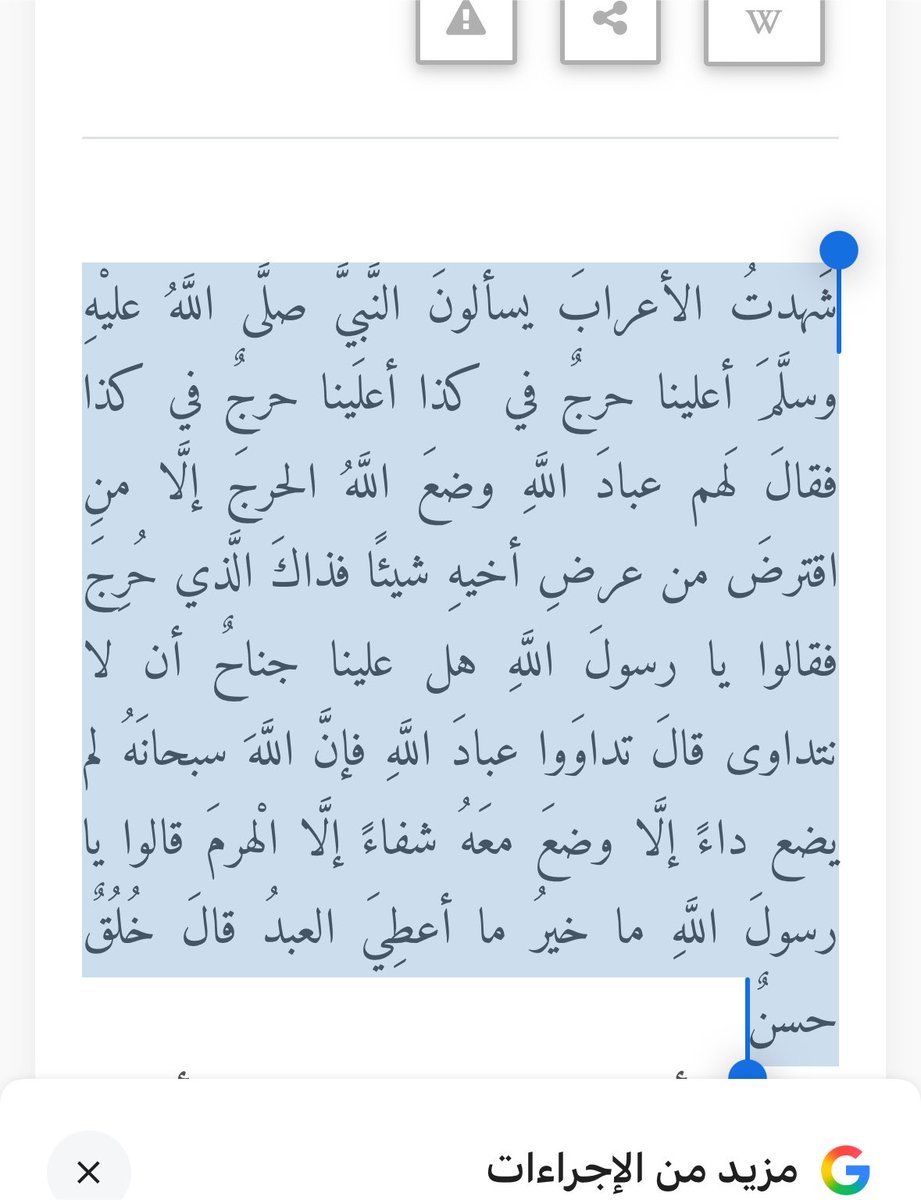 W
شَهدتُ الأعرابَ يسألونَ النَّبيَّ صلَّى اللَّهُ عليْهِ
وسلَّمَ أعلينا حرجٌ في كذا أعلَينا حرجٌ في كذا
فقالَ لَهم عبادَ اللَّهِ وضعَ اللَّهُ الحرجَ إلَّا منِ
اقترضَ من عرضِ أخيهِ شيئًا فذاكَ الَّذي حُرِجَ
فقالوا يا رسولَ اللَّهِ هل علينا جناحٌ أن لا
نتداوى قالَ تداوَوا عبادَ اللَّهِ فإنَّ اللَّهَ سبحانَهُ لم
يضع داءً إلَّا وضعَ معَهُ شفاءً إلَّا الْهرمَ قالوا يا
رسولَ اللَّهِ ما خيرُ ما أعطِيَ العبدُ قالَ خُلُقٌ
حسنٌ
مزيد من الإجراءات